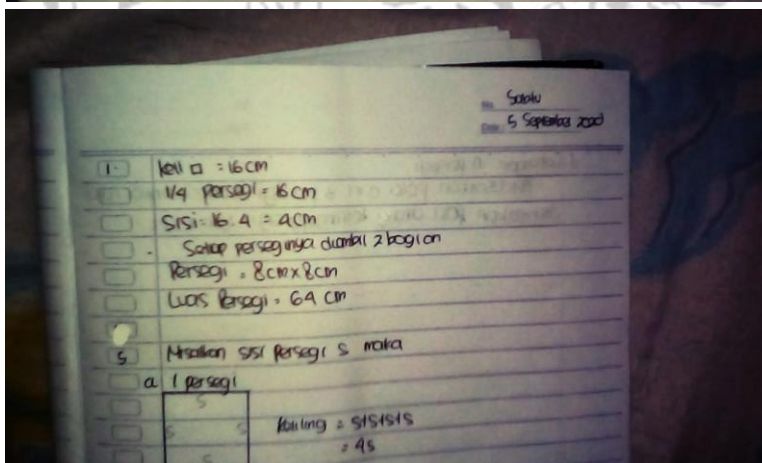 No. Sabtu
Date 5 September 2020
1. kell □ = 16 cm
1/4 persegi = 16 cm
Sisi = 16 . 4 = 4 cm
. Setiap perseginya diambil 2 bagian
Persegi = 8 cm x 8 cm
Luas Persegi = 64 cm
5 Misalkan sisi persegi s maka
a 1 persegi
s
s s keliling = s+s+s+s
s = 4s